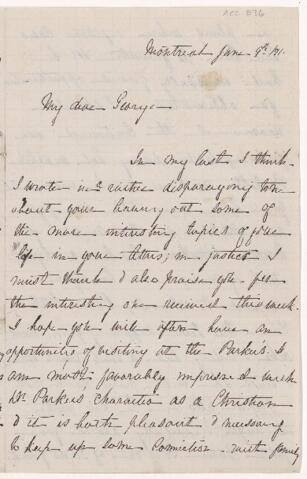 ACC-876
Montreal June 5th 81.
My dear George
In my last I think
I wrote in rather disparaging ton
about your leaving out some of
the more interesting topics of your
life in your letters; in justice I
must thank & also praise you for
the interesting one received this week.
I hope you will often have an
opportunities of visiting at the Parkes. I
am most favorably impressed with
Mr Parkes character as a Christian
& it is both pleasant & necessary
to keep up some connection with family